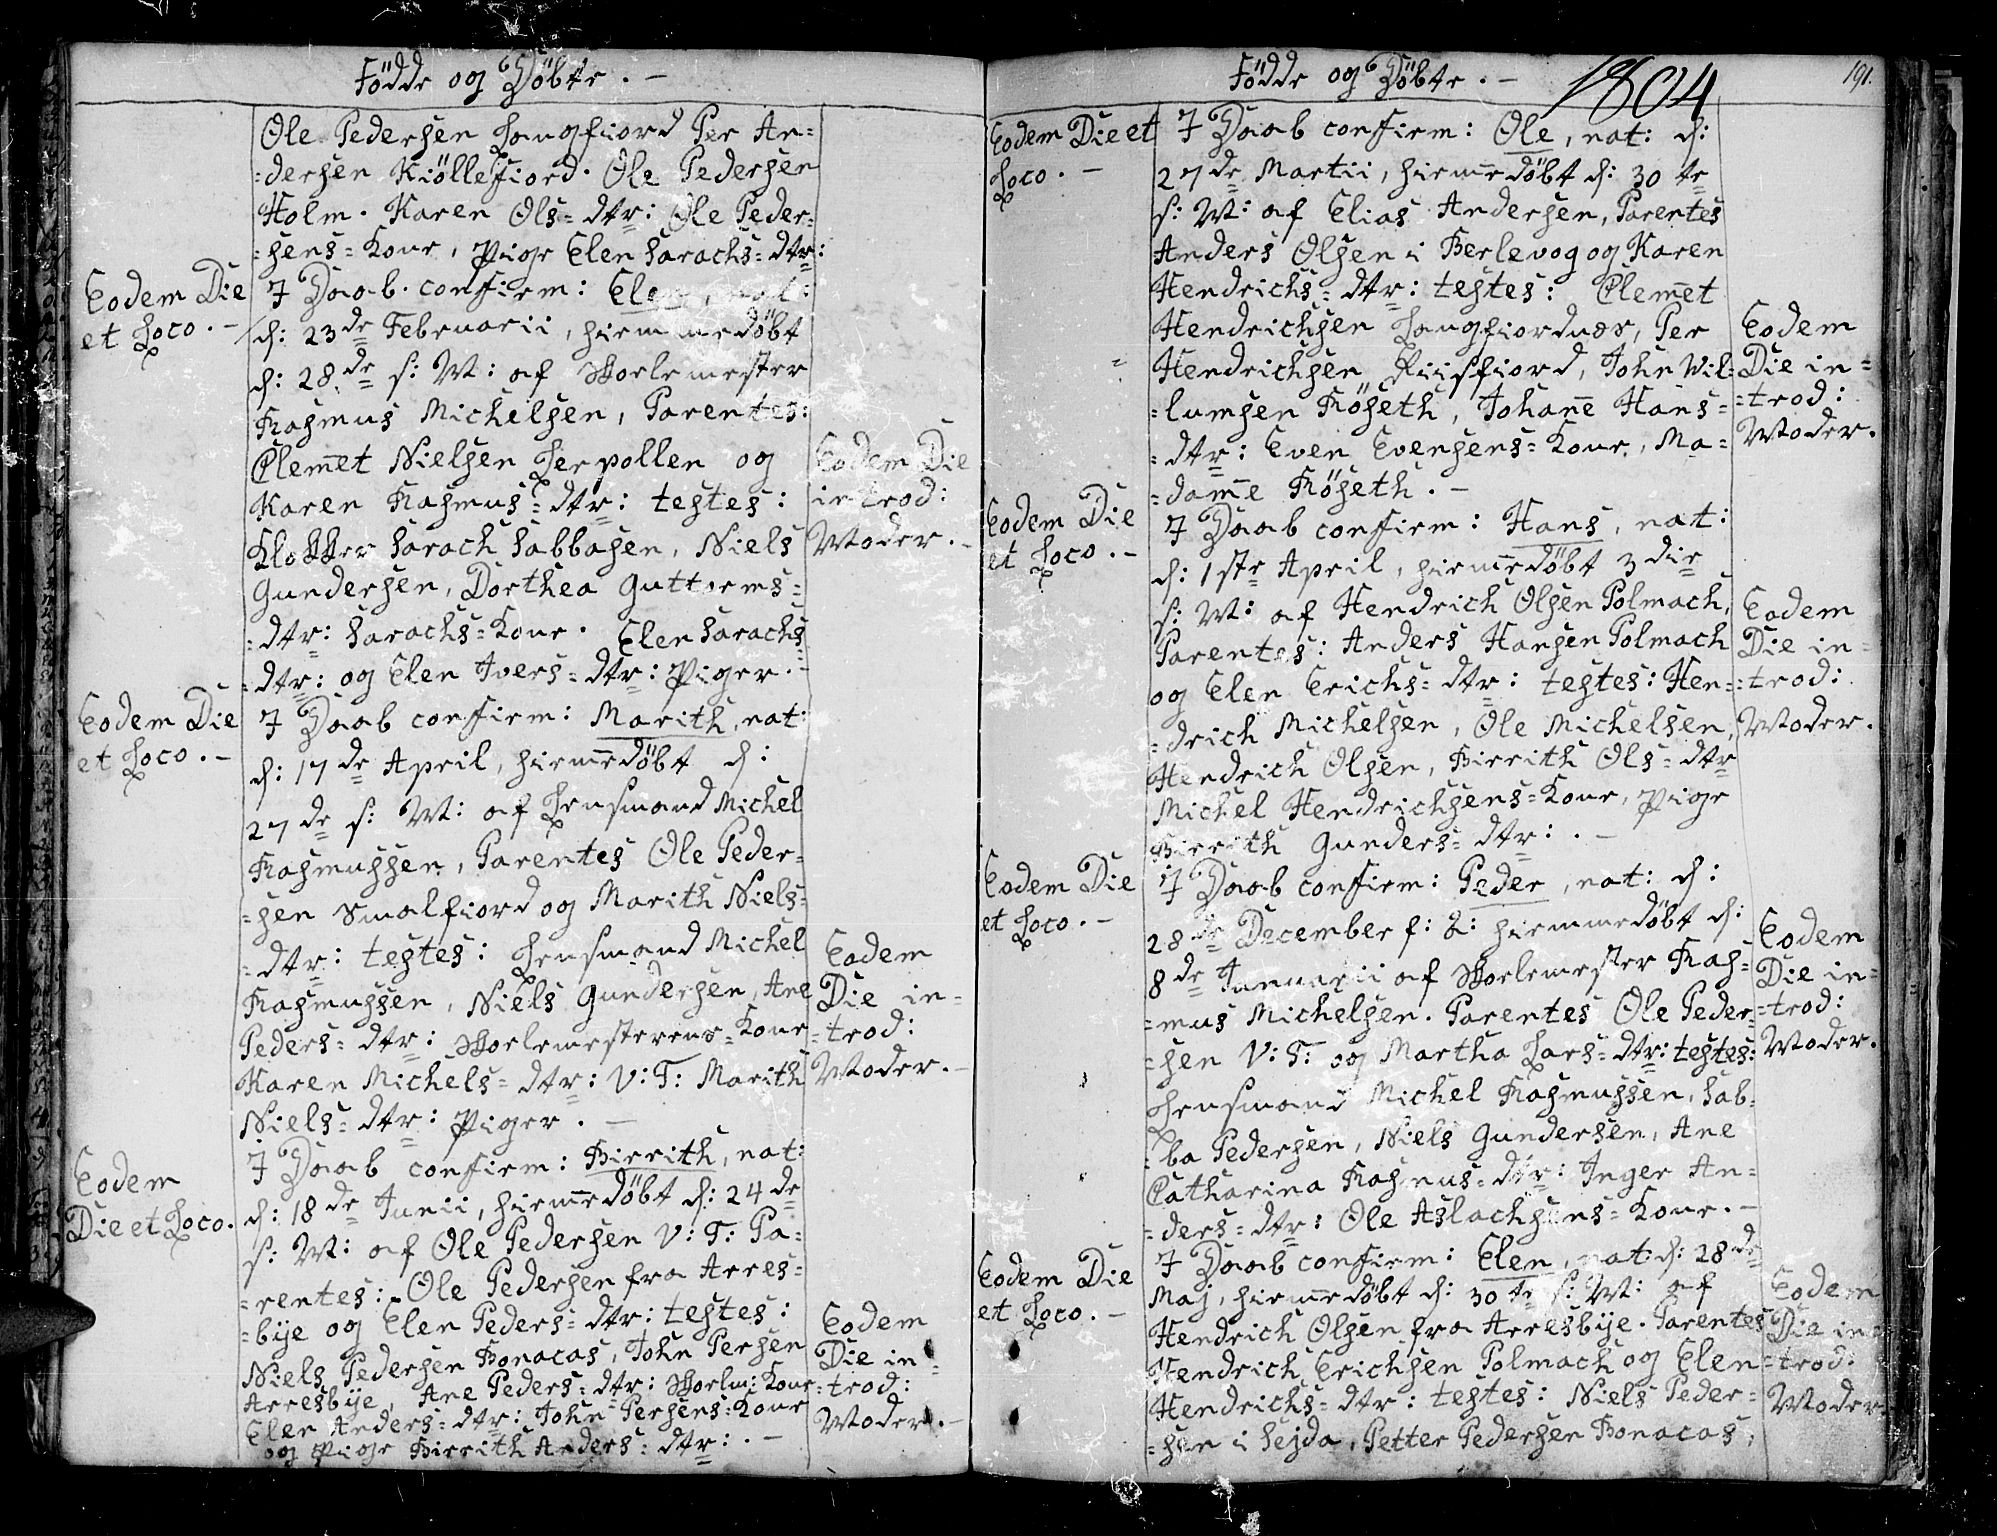 Födde og Döbte. -
Ole Pedersen Langfiord Per An=
=dersen Kiöllefiord. Ole Pedersen
Holm. Karen Ols=dtr: Ole Peder=
=sens=Kone, Pige Elen Sarachs=dtr:
Eodem Die
et Loco. -
I Daab confirm: Elen, nat:
d: 23de Februarii, hiemmedöbt
d: 28de s: M: af Skolemester
Rasmus Michelsen, Parentes:
Clemet Nielsen Lerpollen og
Karen Rasmus=dtr: testes:
Klokker Sarach Sabbasen, Niels
Gundersen, Dorthea Guttorms=
=dtr: Sarachs=Kone. Elen Sarachs
=dtr: og Elen Ivers=dtr: Piger. -
Eodem Die
introd:
Moder. -
Eodem Die
et Loco. -
I Daab confirm: Marith, nat:
d: 17de April, hiemedöbt d:
27de s: M: af Lensmand Michel
Rasmussen, Parentes Ole Peder=
=sen Smalfiord og Marith Niels=
=dtr: testes: Lensmand Michel
Rasmussen, Niels Gundersen, Ane
Peders=dtr: Skolemesterens=Kone
Karen Michels=dtr: V: T: Marith
Niels=dtr: Piger. -
Eodem
Die in=
=trod:
Moder. -
Eodem
Die et Loco.
I Daab confirm: Birrith, nat:
d: 18de Junii, hiemedöbt d: 24de
s: M: af Ole Pedersen V: T: Pa=
=rentes: Ole Pedersen fra Arres=
=bye og Elen Peders=dtr: testes:
Niels Pedersen Bonacas, John Persen
Arresbye, Ane Peders=dtr: Skolm: Kone
Elen Anders=dtr: John Persens=Kone
og Pige Birrith Anders=dtr: . -
Eodem
Die in=
=trod:
Moder. -
Födde og Döbte. -
1804
191.
Eodem Die et
Loco. -
I Daab confirm: Ole, nat: d:
27de Martii, hiemedöbt d: 30te
s: M: af Elias Andersen, Parentes
Anders Olsen i Berlevog og Karen
Hendrichs=dtr: testes: Clemet
Hendrichsen Langfiordnæs, Per
Hendrichsen Riisfiord, John Wil=
=lumsen Röseth, Johane Hans=
=dtr: Even Evensens=Kone, Ma=
=dame Röseth. -
Eodem
Die in=
=trod:
Moder.
Eodem Die
et Loco. -
I Daab confirm: Hans, nat:
d: 1ste April, hiemedöbt 3die
s: M: af Hendrich Olsen Polmach,
Parentes: Anders Hansen Polmach
og Elen Erichs=dtr: testes: Hen=
=drich Michelsen, Ole Michelsen,
Hendrich Olsen, Birrith Ols=dtr
Michel Hendrichsens=Kone, Pige
Birrith Gunders=dtr: . -
Eodem
Die in=
=trod:
Moder.
Eodem Die
et Loco. -
I Daab confirm: Peder, nat: d:
28de December f: A: hiemmedöbt d:
8de Januarii af Skolemester Ras=
=mus Michelsen. Parentes Ole Peder=
=sen V: T: og Martha Lars=dtr: testes:
Lensmand Michel Rasmussen, Sab=
=ba Pedersen, Niels Gundersen, Ane
Catharina Rasmus=dtr: Inger An=
=ders=dtr: Ole Aslachsens=Kone. -
Eodem
Die in=
=trod:
Moder.
Eodem Die
et Loco. -
I Daab confirm: Elen, nat: d: 28de
Maj, hiemedöbt d: 30te s: M: af
Hendrich Olsen fra Arresbye. Parentes
Hendrich Erichsen Polmach og Elen
Hendrichs=dtr: testes: Niels Peder=
=sen i Sejda, Petter Pedersen Bonacas,
Eodem
Die in=
=trod:
Moder.